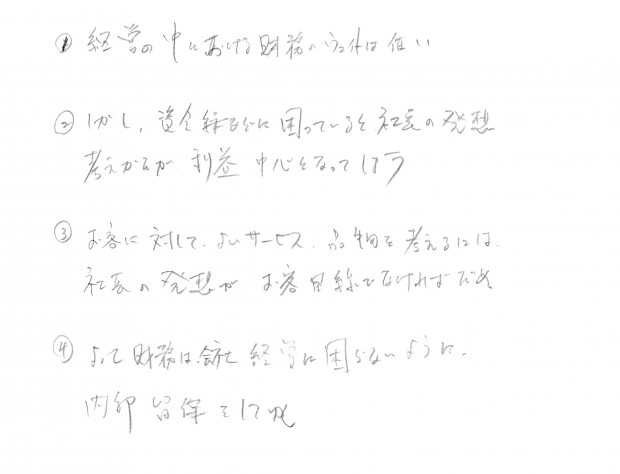 ① 経営の中における財務のウェイトは低い
② しかし、資金繰りなどに困っていると社長の発想
考えかたが利益中心となってしまう
③ お客に対して、よいサービス、品物を考えるには、
社長の発想がお客目線でなければだめ
④ よって財務は会社経営に困らないように、
内部留保をしてゆく